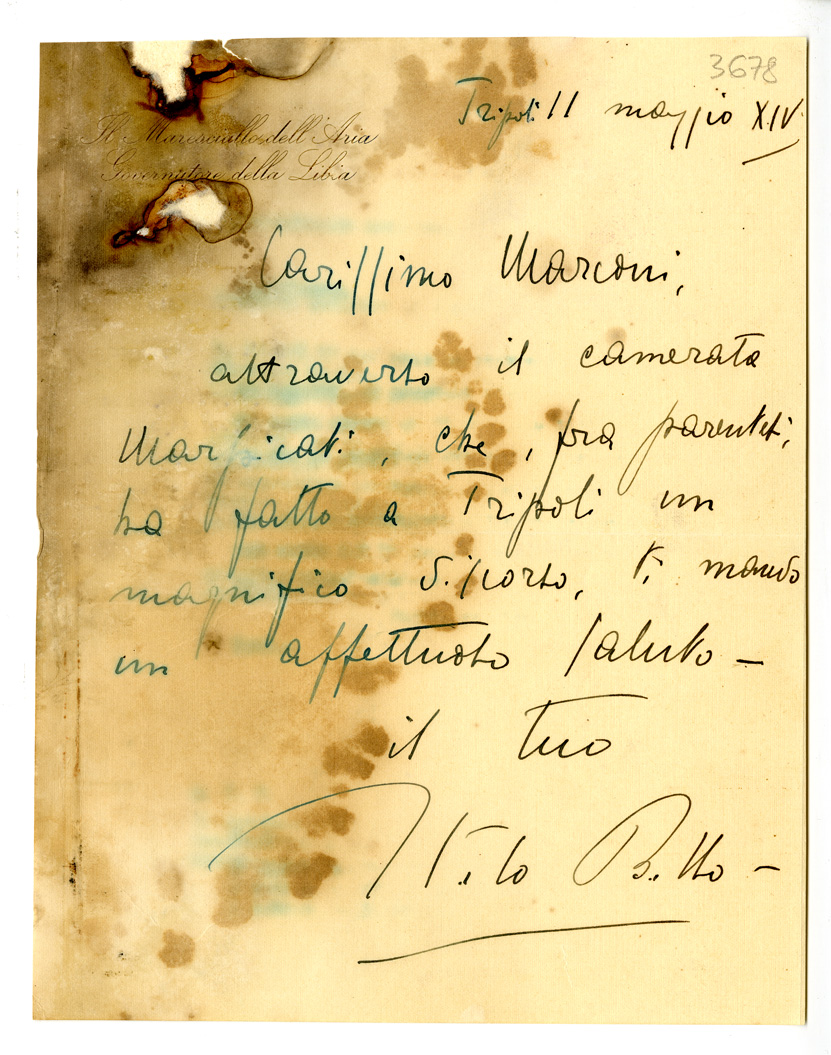 3678
Tripoli 11 maggio XIV
Il Maresciallo dell'Aria
Governatore della Libia
Carissimo Marconi,
attraverso il camerata
Marpicati, che, fra parentesi,
ha fatto a Tripoli un
magnifico discorso, ti mando
un affettuoso saluto —
il tuo
Italo Balbo —